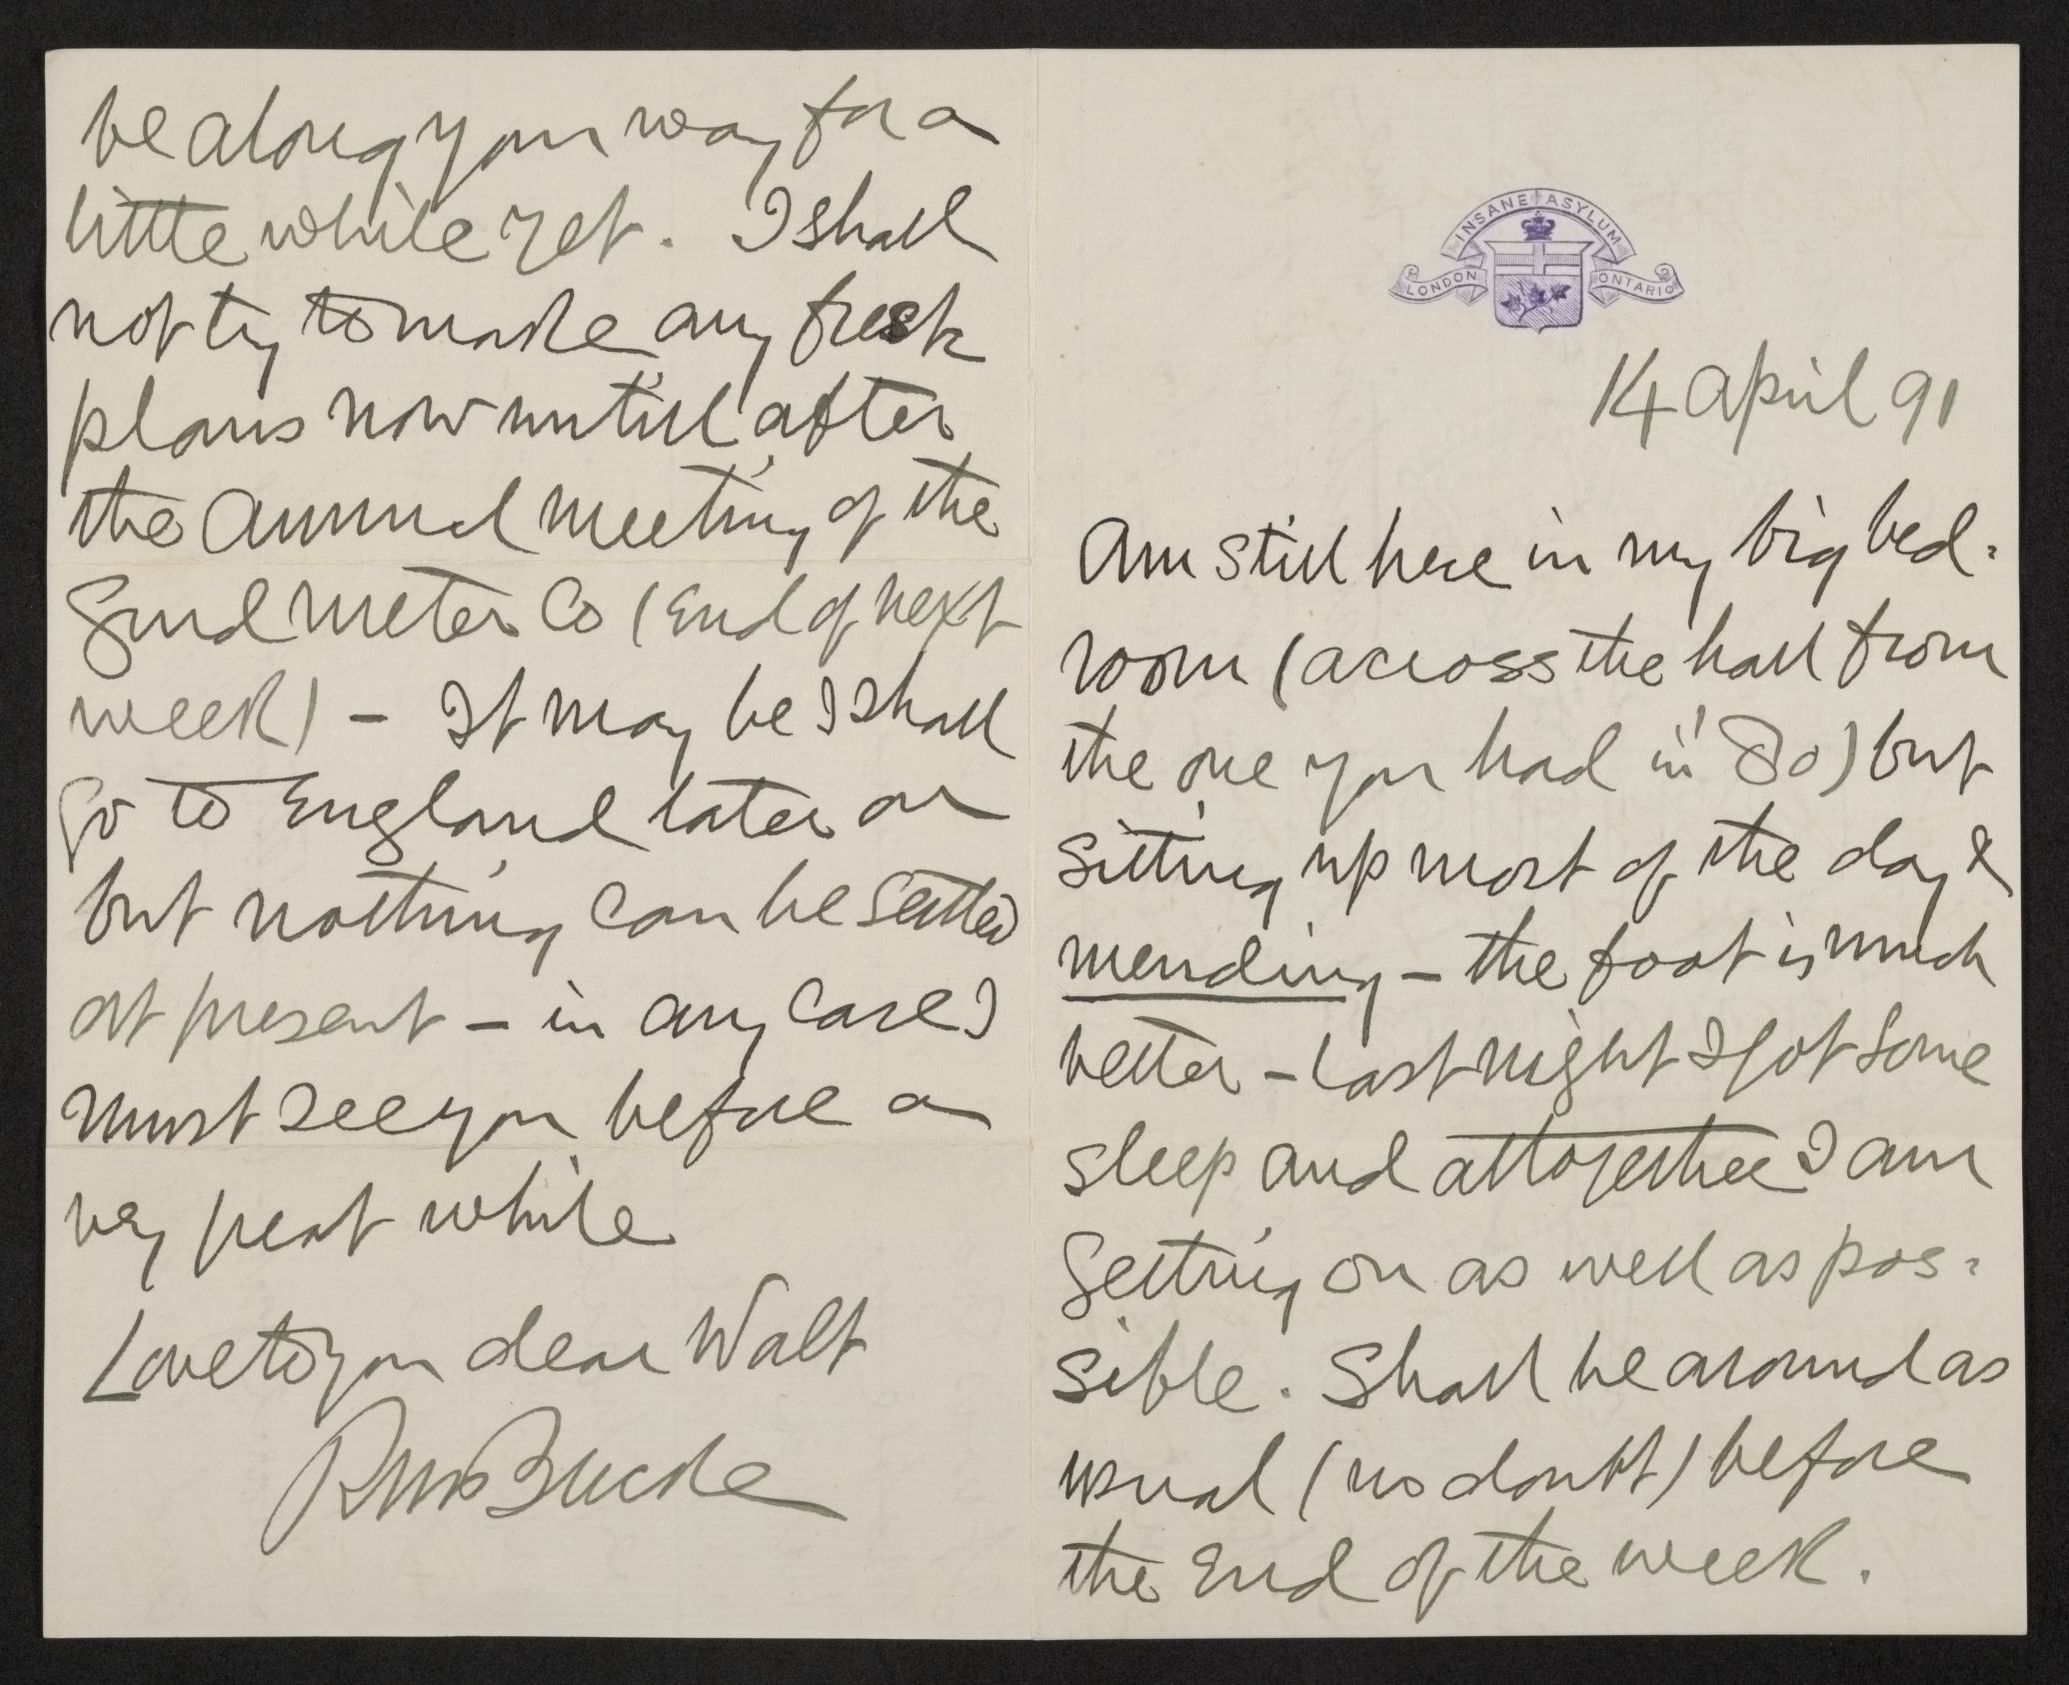 INSANE ASYLUM
LONDON ONTARIO
14 April 91
Am still here in my big bed-
room (across the hall from
the one you had in '80) but
sitting up most of the day &
mending – the foot is much
better – last night I got some
sleep and altogether I am
getting on as well as pos-
sible. Shall be around as
usual (no doubt) before
the end of the week.
be along your way for a
little while yet. I shall
not try to make any fresh
plans now until after
the annual meeting of the
meter Co (end of next
week) – It may be I shall
go to England later on
but nothing can be settled
at present – in any case I
must see you before a
very great while
Love to you dear Walt
RM Bucke